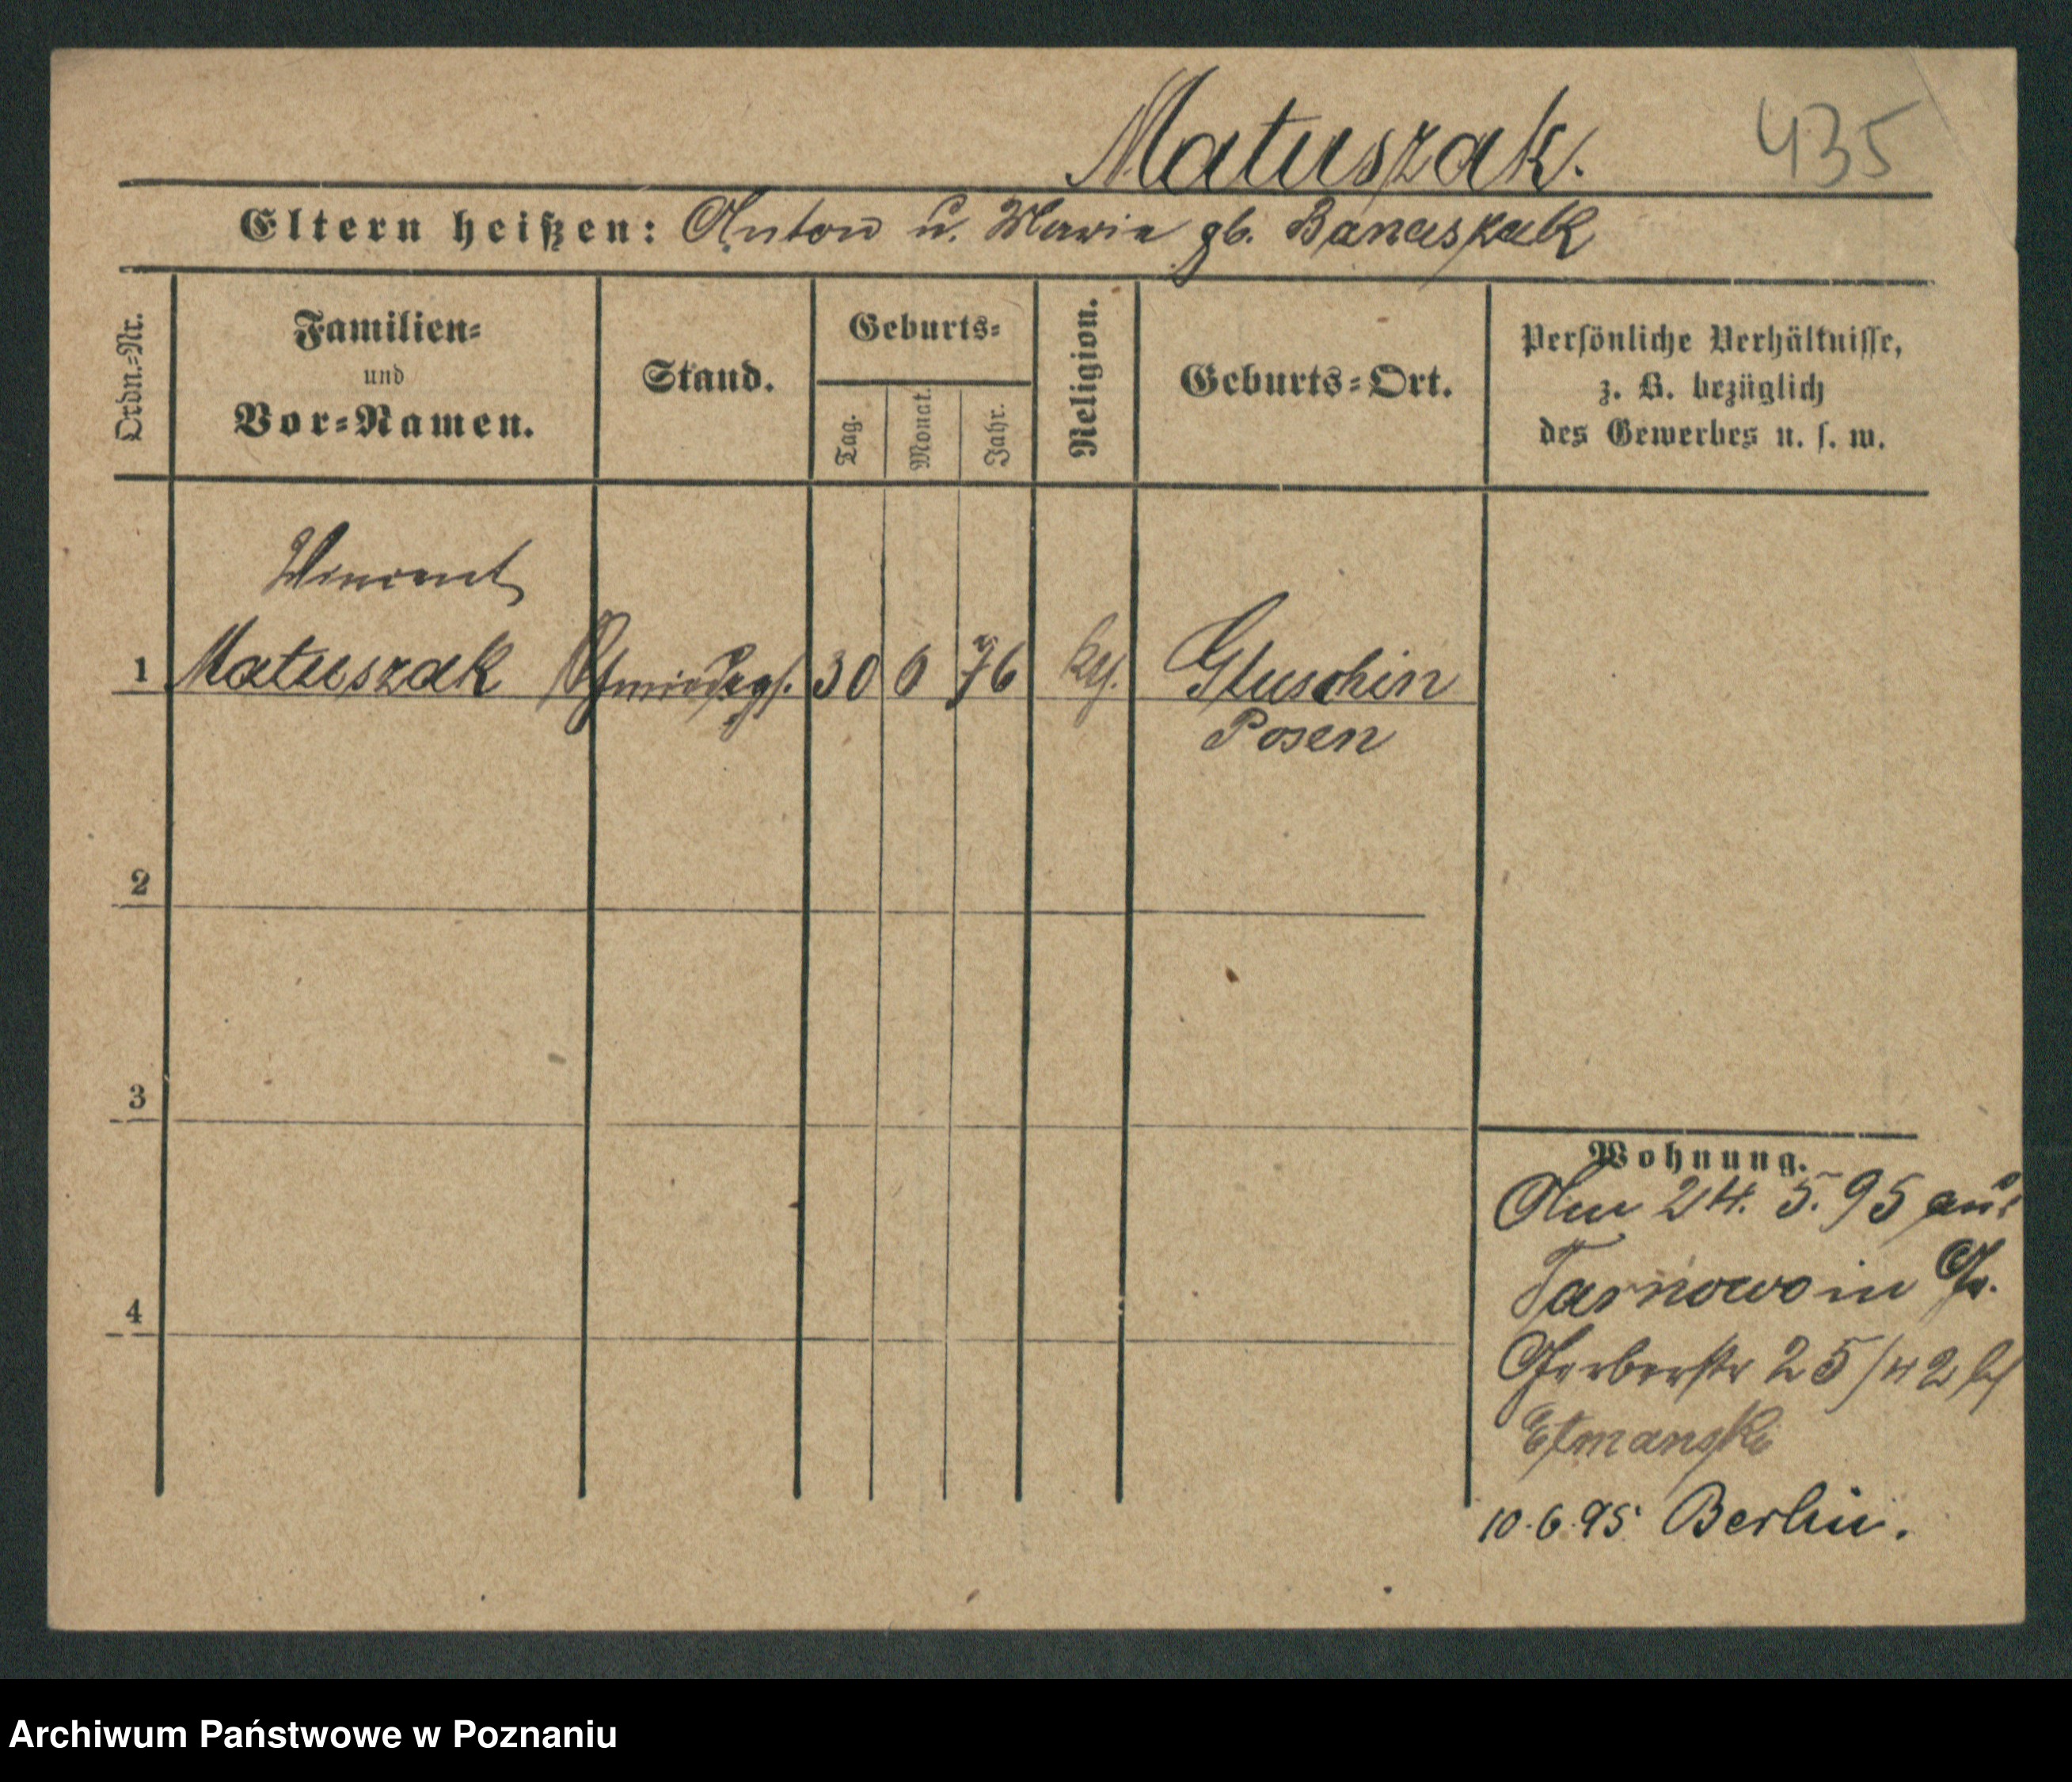 Matuszak. 435
Eltern heißen: Anton u. Maria gb. Banaszak
Ordn.-Nr.
Familien-
und
Vor-Namen.
Stand.
Geburts-
Tag.
Monat.
Jahr.
Religion.
Geburts-Ort.
Persönliche Verhältnisse,
z. B. bezüglich
des Gewerbes u. s. w.
Vincent
1 Matuszak Schmiedeges. 30 6 76 kth. Gluschin
Posen
2
3
4
Wohnung.
Am 24. 5. 95 aus
Tarnowo in
Gerberstr 25/42 bei
Etmanski
10.6.95 Berlin.
Archiwum Państwowe w Poznaniu